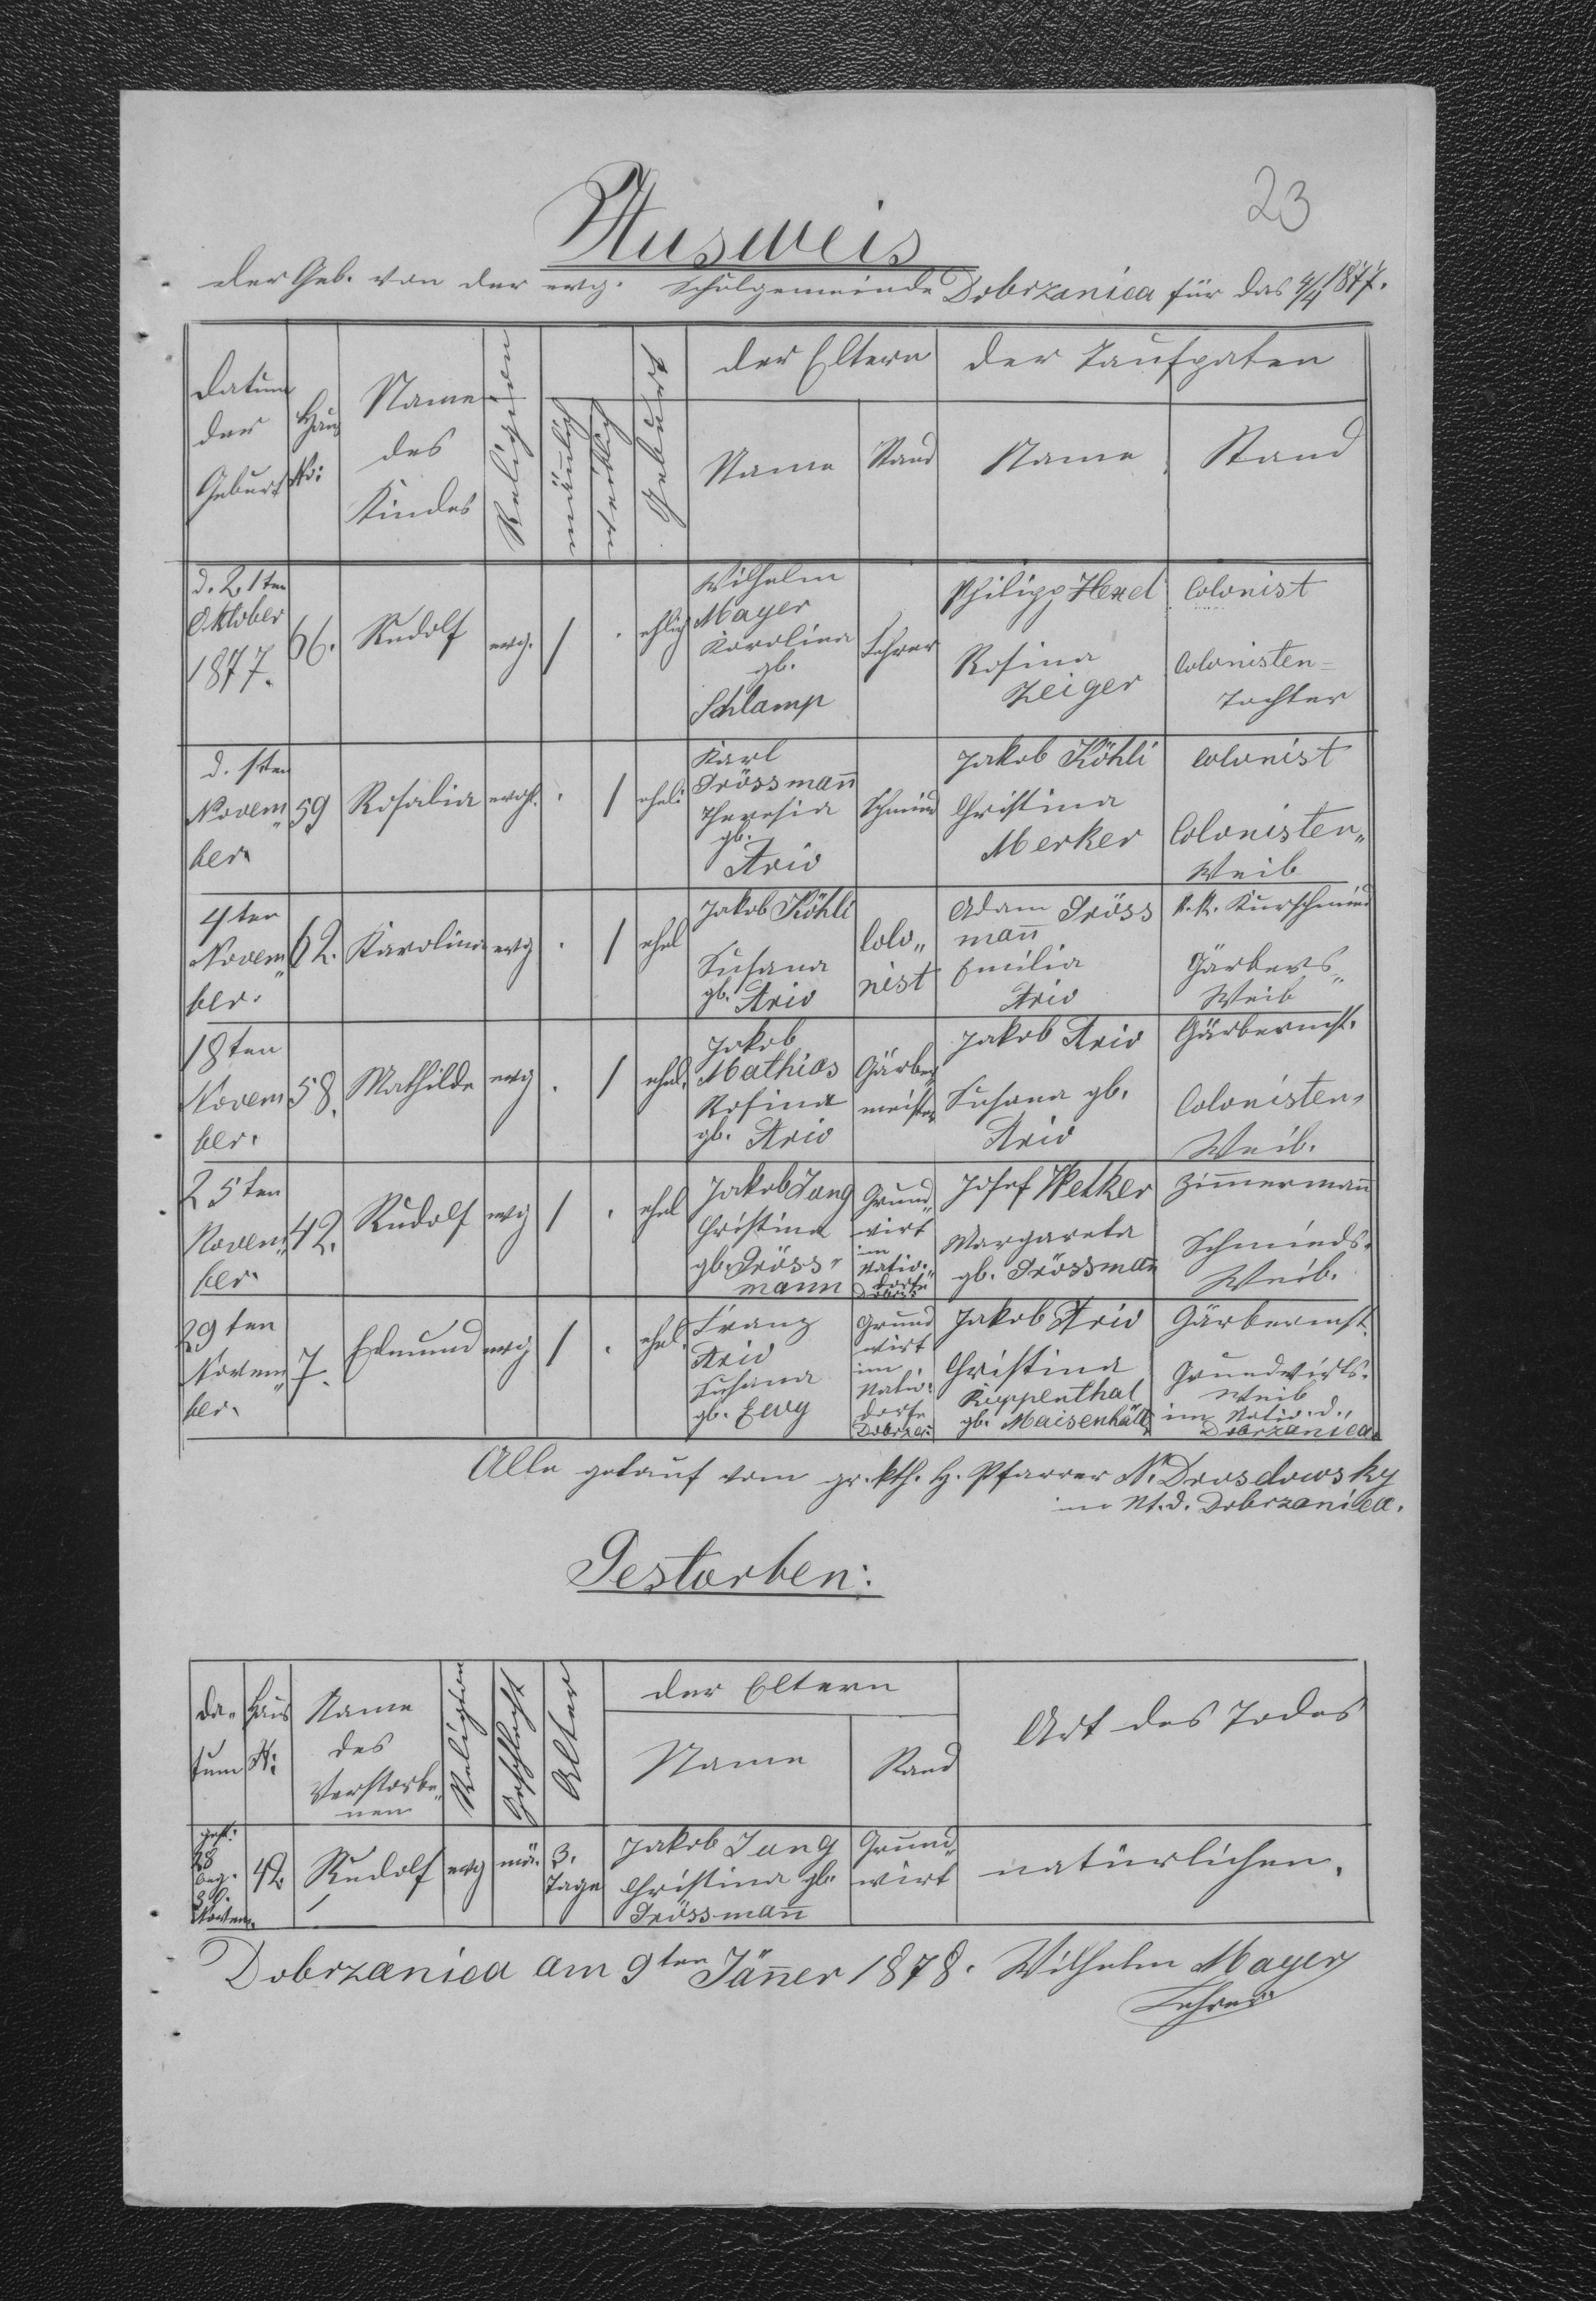 23
Ausweis
der Geb. von der evg. Schulgemeinde Dobrzanica für das 4/4 1877.
Datum der Geburt Haus No: Name des Kindes Religion mänlich weiblich Geburt der Eltern der Taufpaten
Name Stand Name Stand
d. 21ten Oktober 1877. 66. Rudolf evg. / . ehlich Wilhelm Mayer Karolina gb. Schlamp Lehrer Philipp Hexel Colonist
Rosina Zeiger Colonisten= Tochter
d. 1ten Novem„ber. 59 Rosalia evgl. . / ehel: Karl Grössmann̄ Theresia gb. Ario Schmied Jakob Köhli Colonist
Christina Merker Colonisten„ Weib
4ten Novem„ber. 62. Karolina evg . / ehel Jakob Köhli Susana gb. Ario Colo„nist Adam Grössman̄ K.K. Kurschmied
Emilia Ario Gärbers„ Weib
18ten Novem ber. 58. Mathilde evg . / ehel. Jakob Mathias Rosina gb. Ario Gärber meister Jakob Ario Gärbermst.
Susana gb. Ario Colonisten„ Weib.
25ten Novem„ber. 42. Rudolf evg / . ehel Jakob Jung Christina gb. Gröss„mann Grund„wirt im Natio. dorfe Dobrz: Josef Welker Zim̄erman̄
Margareta gb. Grössman̄ Schmieds. Weib.
29ten Novem„ber. 7. Edmund evg / . ehel. Franz Ario Susana gb. Ewy Grund wirt im Natio: dorfe Dobrzan: Jakob Ario Gärbermst.
Christina Rieppenthal gb. Maisenhält Grundwirts. Weib im Natio. d., Dobrzanica.
Alle getauf vom gr. kth. H. Pfarrer N. Drosdowsky
im Nt. d. Dobrzanica.
Gestorben:
Da„tum Haus N: Name des Verstorbe„nen Religion Geschlecht Alter der Eltern Art des Todes
Name Stand
gest: 28 beg. 30. Novem. 42 Rudolf evg mä. 3. Tage Jakob Jung Christina gb. Grössman̄ Grund„wirt natürlichen.
Dobrzanica am 9ten Jän̄er 1878. Wilhelm Mayer
Lehrer